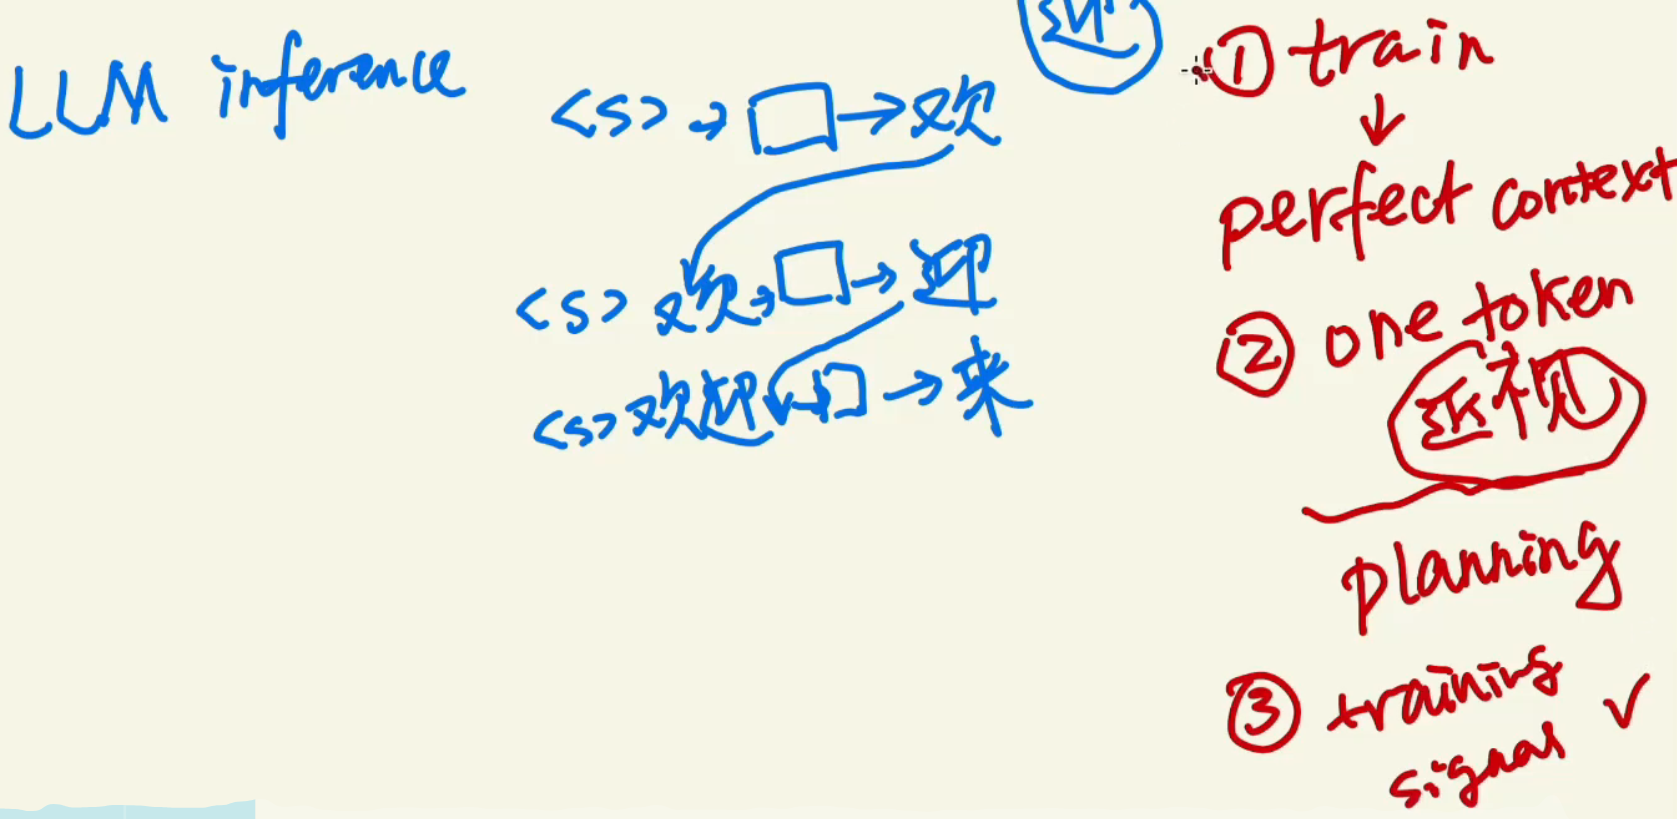 LLM inference
<s> → □ → 欢
<s> 欢 → □ → 迎
<s> 欢迎 → □ → 来
迎
① train
↓
perfect context
② one token
近视
planning
③ training
signal ✓